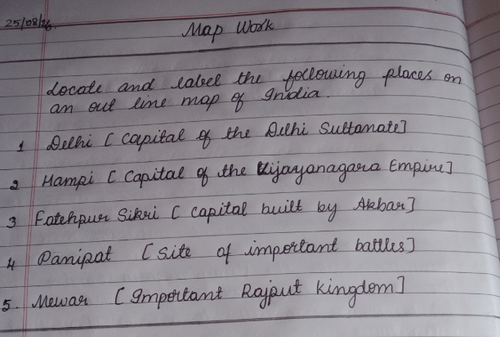 25/08/26.
Map Work
Locate and label the following places on
an out line map of India.
1 Delhi [Capital of the Delhi Sultanate]
2 Hampi [Capital of the Vijayanagara Empire]
3 Fatehpur Sikri [Capital built by Akbar]
4 Panipat [Site of important battles]
5. Mewar [Important Rajput kingdom]